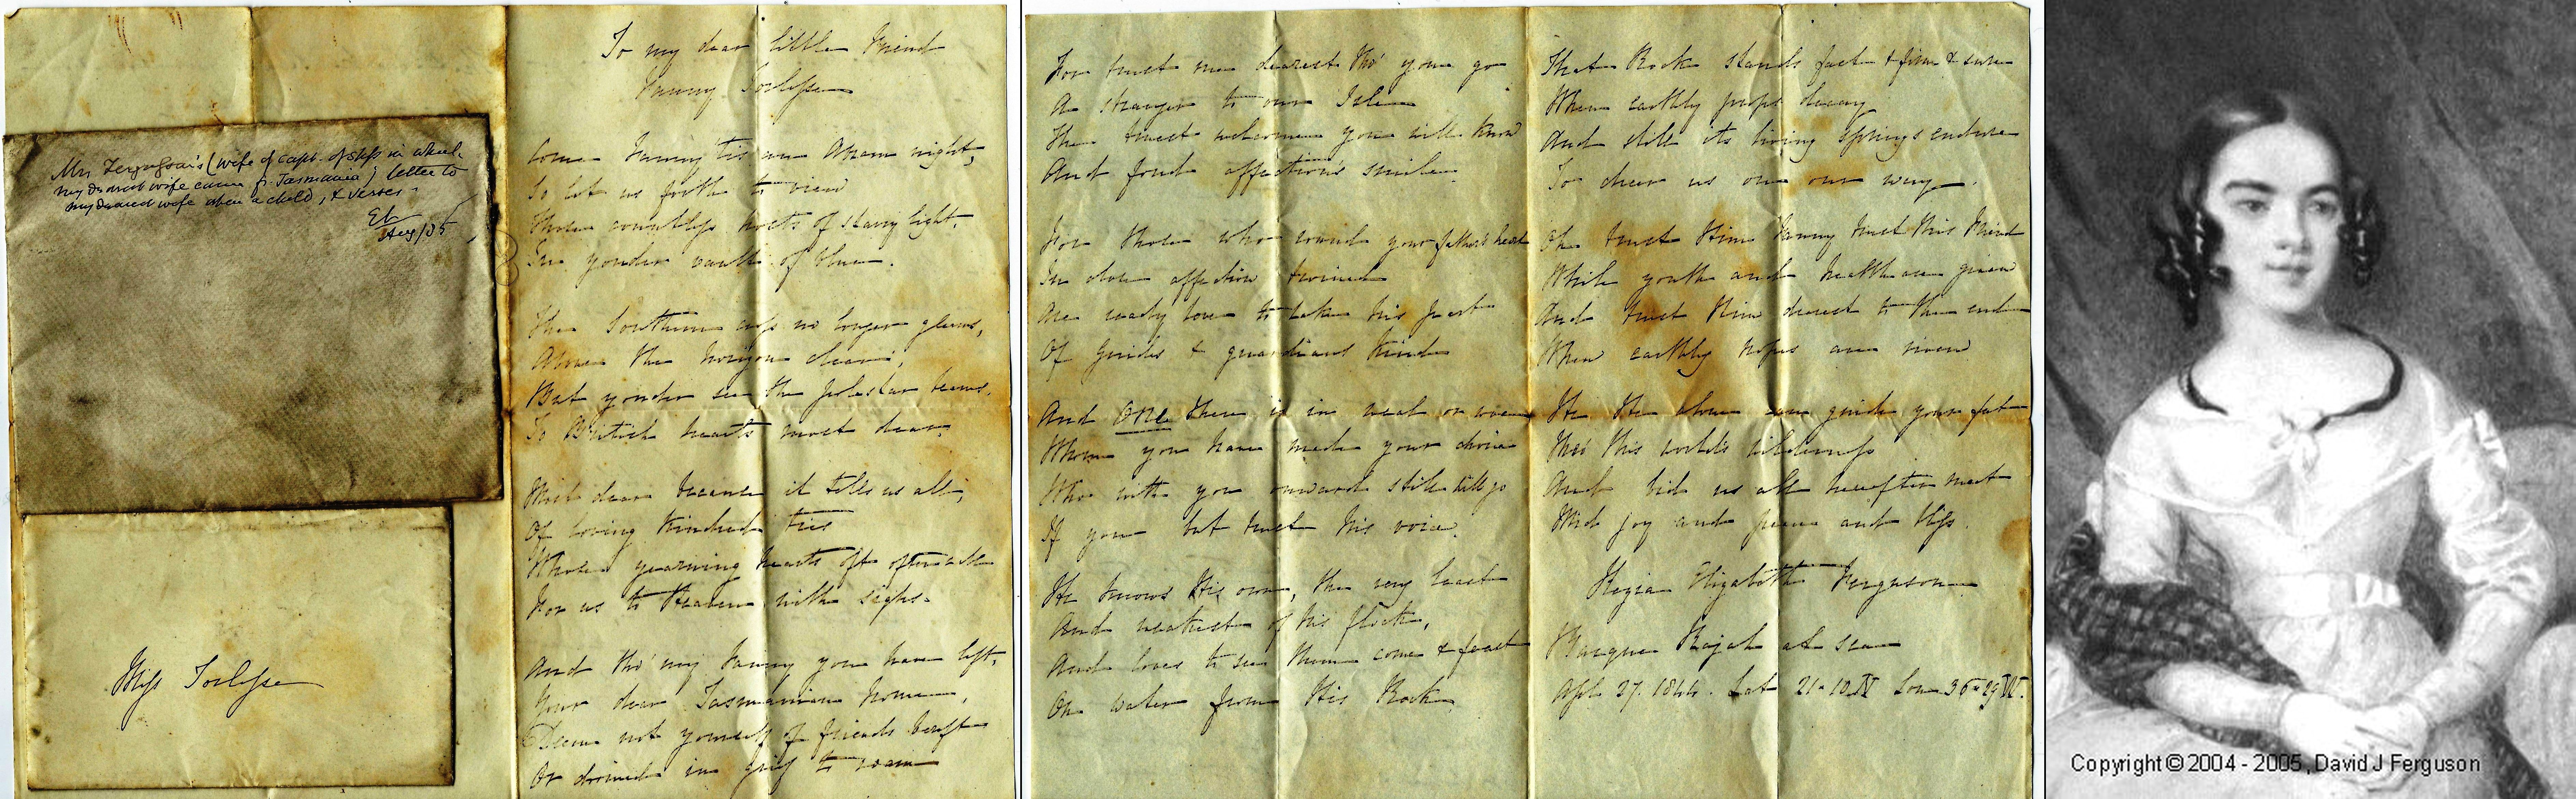 Mrs Fergusson's (wife of capt. of ship in which
my dearest wife came fr. Tasmania) letter to
my dearest wife when a child, & verses.
Aug/05
Miss Torlesse
To my dear little Friend
Fanny Torlesse
Come Fanny tis an Ocean night,
So let us forth to view
Those countless hosts of starry light,
In yonder vault of blue.
The Southern cross no longer gleams,
Above the horizon clear,
But yonder see the polestar beams,
To British hearts most dear,
Most dear because it tells us all,
Of loving kindred ties
Whose yearning hearts oft often call
For us to Heaven with sighs.
And tho' my Fanny you have left,
Your dear Tasmanian home,
Deem not yourself of friends bereft
Or doomed in grief to roam
For trust me dearest tho' you go
A stranger to our Isle
The truest welcome you will know
And fond affection's smile.
For those who round your father's heart
In close affection twined
Are ready love to take his part
Of guides & guardians kind
And One there is in weal or woe
Whom you have made your choice
Who with you onward still will go
If you but trust his voice.
He knows His own, the very least
And weakest of his flock,
And loves to see them come & feast
On water from His Rock
That Rock stands fast & firm & sure
When earthly props decay
And still its living springs endure
To cheer us on our way.
Oh trust Him Fanny trust this Friend
While youth and health are given
And trust Him dearest to the end
When earthly hopes are riven
He He alone can guide your feet
Thro' this world's wilderness
And bid us all hereafter meet
Mid joy and peace and bliss.
Hegia Elizabeth Ferguson
Barque Rajah at sea
Apl 27. 1844. Lat 21-10 N Lon 36-29 W.
Copyright © 2004 - 2005, David J Ferguson